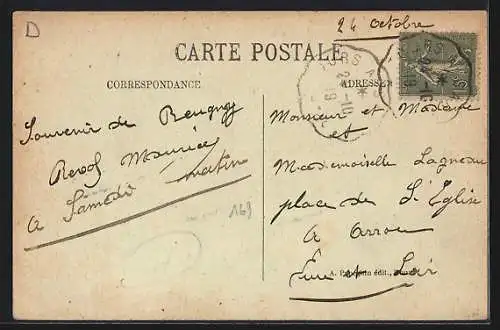 D
24 octobre
CARTE POSTALE
CORRESPONDANCE
ADRESSE
Souvenir de
Maurice
a Samedi matin
169
Monsieur et Madame
et
Mademoiselle Lagneau
place de l'Eglise
a Arrou
Eure et Loir
édit.,